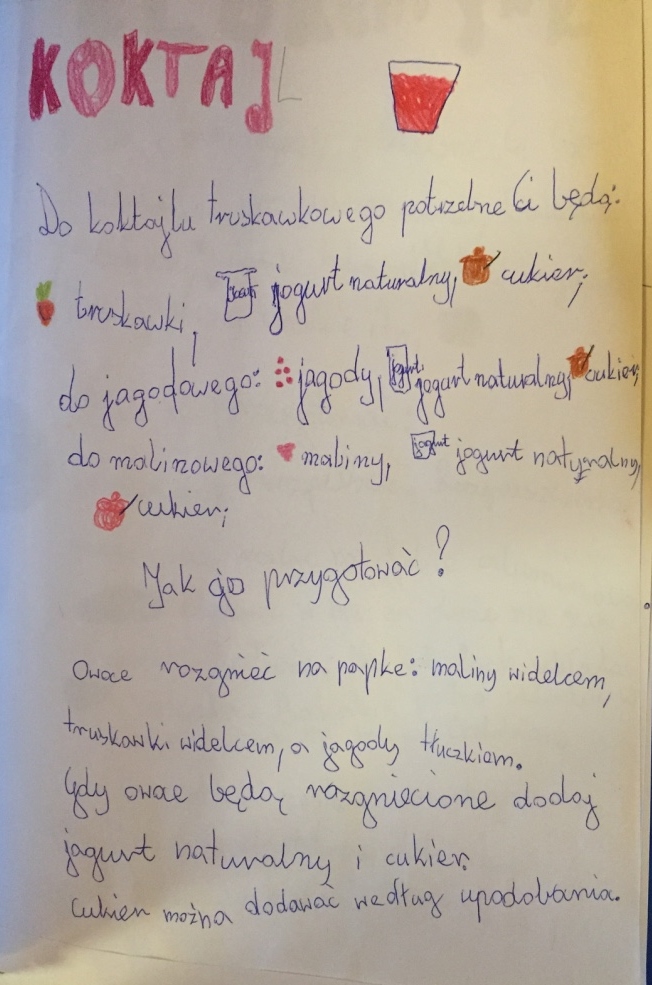 KOKTAJL
Do koktajlu truskawkowego potrzebne Ci będą:
truskawki, jogurt jogurt naturalny, cukier;
do jagodowego: jagody, jogurt jogurt naturalny, cukier;
do malinowego: maliny, jogurt jogurt naturalny,
cukier;
Jak go przygotować?
Owoce rozgnieć na papkę: maliny widelcem,
truskawki widelcem, a jagody tłuczkiem.
Gdy owoce będą rozgniecione dodaj
jogurt naturalny i cukier.
Cukier można dodawać według upodobania.